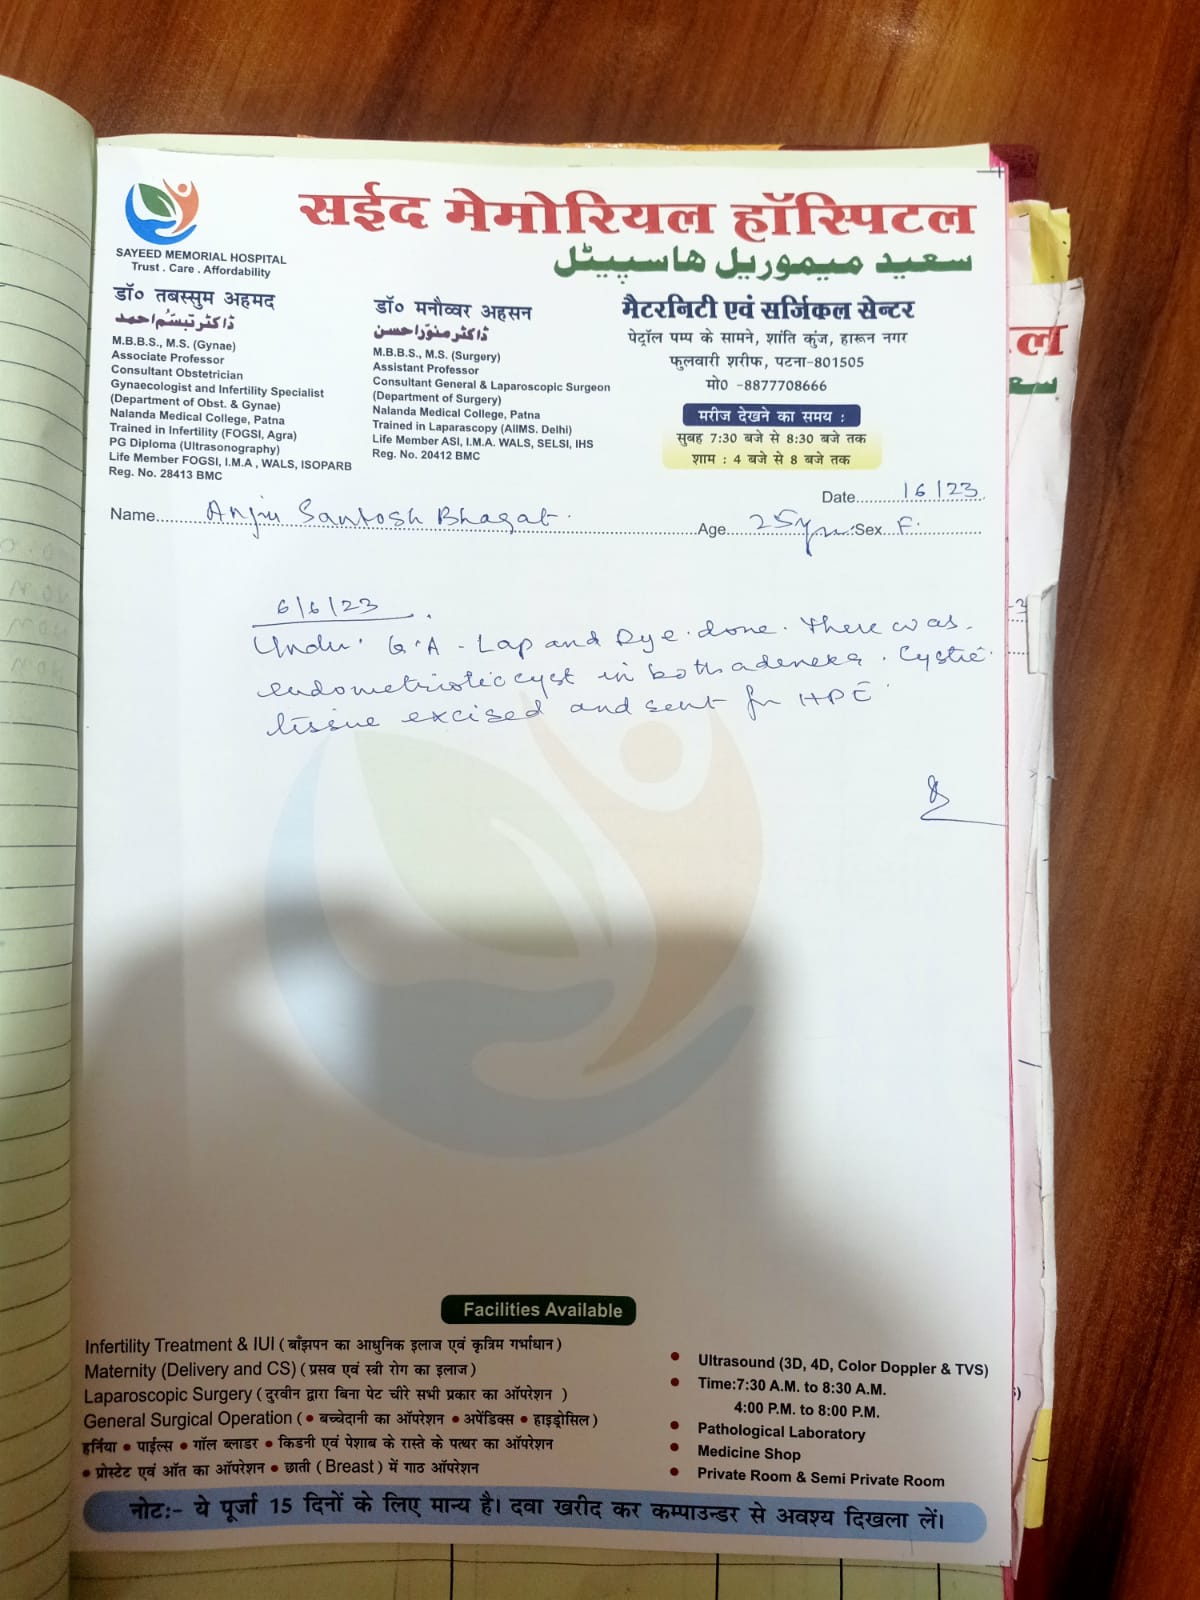 सईद मेमोरियल हॉस्पिटल
سعید میموریل ہاسپیٹل
SAYEED MEMORIAL HOSPITAL
Trust . Care . Affordability
डॉ० तबस्सुम अहमद
ڈاکٹر تبسّم احمد
M.B.B.S., M.S. (Gynae)
Associate Professor
Consultant Obstetrician
Gynaecologist and Infertility Specialist
(Department of Obst. & Gynae)
Nalanda Medical College, Patna
Trained in Infertility (FOGSI, Agra)
PG Diploma (Ultrasonography)
Life Member FOGSI, I.M.A , WALS, ISOPARB
Reg. No. 28413 BMC
डॉ० मनौव्वर अहसन
ڈاکٹر منوّر احسن
M.B.B.S., M.S. (Surgery)
Assistant Professor
Consultant General & Laparoscopic Surgeon
(Department of Surgery)
Nalanda Medical College, Patna
Trained in Laparascopy (AIIMS. Delhi)
Life Member ASI, I.M.A. WALS, SELSI, IHS
Reg. No. 20412 BMC
मैटरनिटी एवं सर्जिकल सेन्टर
पेट्रॉल पम्प के सामने, शांति कुंज, हारून नगर
फुलवारी शरीफ, पटना-801505
मो0 -8877708666
मरीज देखने का समय :
सुबह 7:30 बजे से 8:30 बजे तक
शाम : 4 बजे से 8 बजे तक
Date 16/23
Name Anju Santosh Bhagat. Age 25yrs Sex F.
6/6/23
Under G.A - Lap and Dye done. There was
endometriotic cyst in both adenexa. Cystic
tissue excised and sent for HPE
ल
سع
Facilities Available
Infertility Treatment & IUI ( बाँझपन का आधुनिक इलाज एवं कृत्रिम गर्भाधान )
Maternity (Delivery and CS) ( प्रसव एवं स्त्री रोग का इलाज )
Laparoscopic Surgery ( दुरवीन द्वारा बिना पेट चीरे सभी प्रकार का ऑपरेशन )
General Surgical Operation ( • बच्चेदानी का ऑपरेशन • अपेंडिक्स • हाइड्रोसिल )
हर्निया • पाईल्स • गॉल ब्लाडर • किडनी एवं पेशाब के रास्ते के पत्थर का ऑपरेशन
• प्रोस्टेट एवं ऑत का ऑपरेशन • छाती ( Breast ) में गाठ ऑपरेशन
• Ultrasound (3D, 4D, Color Doppler & TVS)
• Time:7:30 A.M. to 8:30 A.M.
4:00 P.M. to 8:00 P.M.
• Pathological Laboratory
• Medicine Shop
• Private Room & Semi Private Room
नोट:- ये पूर्जा 15 दिनों के लिए मान्य है। दवा खरीद कर कम्पाउन्डर से अवश्य दिखला लें।